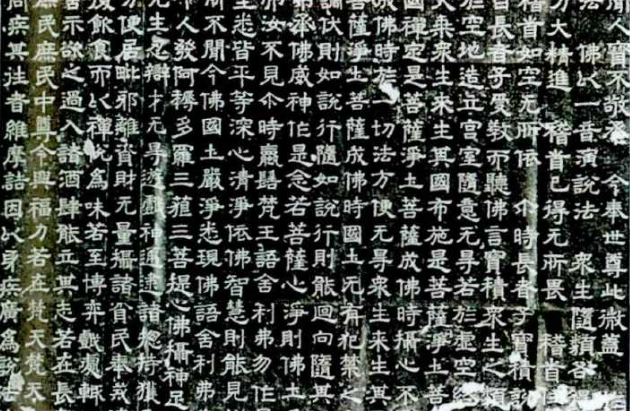 人寶不敬承　今奉世尊此微蓋
法　佛以一音演說法　眾生隨類各得
力大精進　稽首已得无所畏　稽首
稽首如空无所依　尒時長者子寶積說
自長者子受教而聽佛言寶積眾生之類
於空地造立宮室隨意无㝵若於虛空終
大乘眾生來生其國布施是菩薩淨土菩
國禪定是菩薩淨土菩薩成佛時攝心不
成佛時於一切法方便无㝵眾生來生其
菩薩淨土菩薩成佛時國土无有犯禁之
調伏則如說行隨如說行則能迴向隨其
弗承佛威神作是念若菩薩心淨則佛土
亦汝不見尒時螺髻梵王語舍利弗勿作
生悉皆平等深心清淨依佛智慧則能見
所不聞今佛國土嚴淨悉現佛語舍利弗
千人發阿耨多羅三藐三菩提心佛攝神足
无生忍辯才无㝵遊戲神通逮諸總持獲
方便居毗邪離資財无量攝諸貧民奉戒
復飲食而以禪悅為味若至博弈戲處輒
害示欲之過入諸酒肆能立其志若在長
庶民庶民中尊令興福力若在梵天梵天
問疾其往者維摩詰因以身疾廣為說法